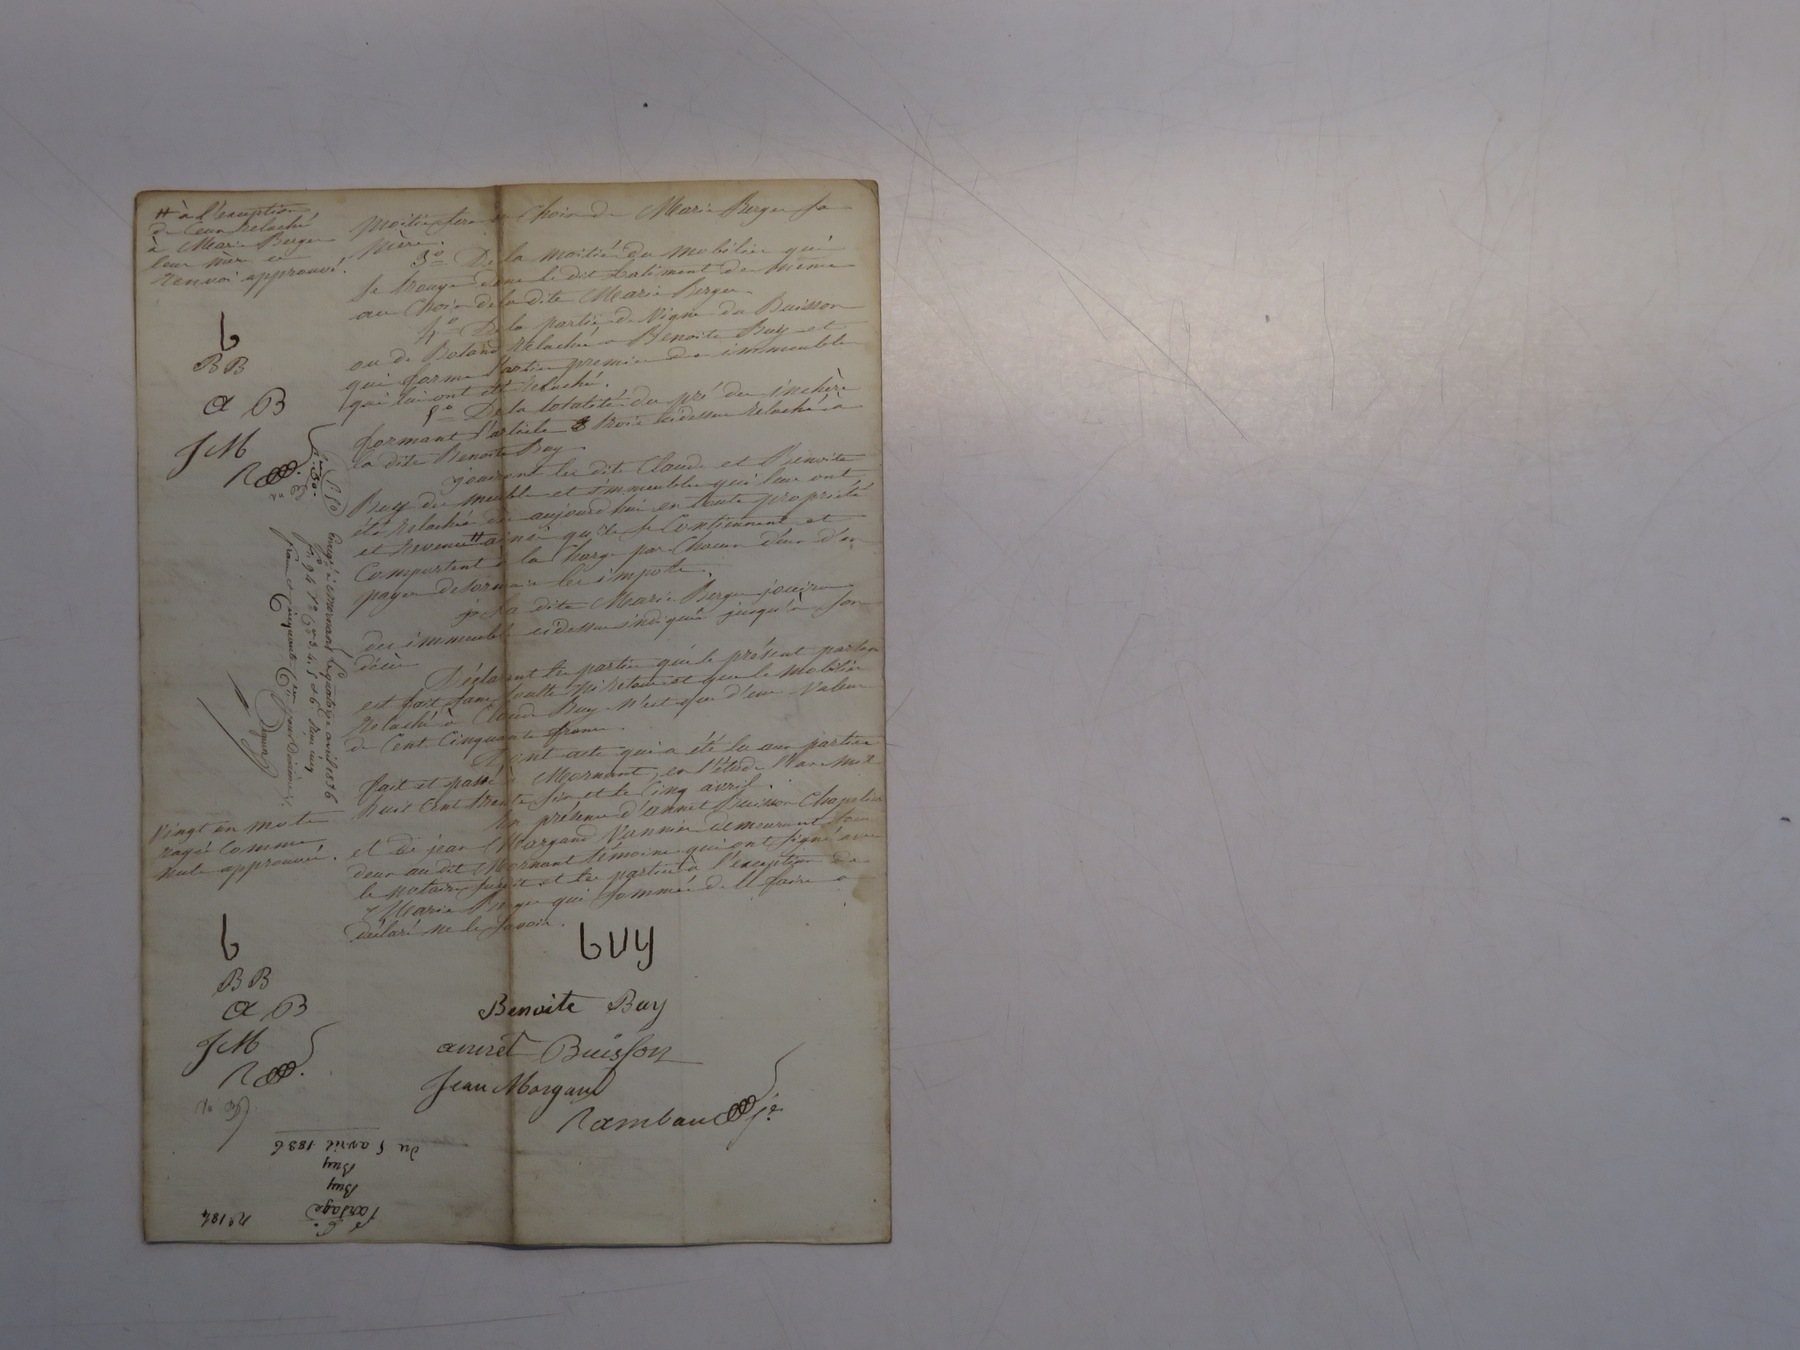 # à l'exception
de ceux relaché
à Marie Berger
leur mère ce
Renvoi approuvé.
b
BB
a B
JM
R
moitié sera au Choix de Marie Berger sa
mère.
3° De la moitié du mobilier qui
se trouve dans le dit batiment de même
au Choix de la dite Marie Berger
4° De la partie de Vigne du Buisson
ou de Boland Relaché a Benoite Buy et
qui forme l'article premier des immeubles
qui lui ont été relaché.
5° De la totalité du pré du
formant l'article 3 trois cidessus relaché à
la dite Benoite Buy
jouiront les dits Claude et Benoite
Buy des meubles et immeubles qui leur ont
été relachés dès aujourd'hui en toute propriété
et Revenus # ainsi qu'ils se Contiennent et
Comportent à la Charge par Chacun d'eux d'en
payer desormais les impots.
la dite Marie Berger jouira
des immeubles cidessus indiqués jusqu'à son
décès
Déclarent les parties que le présent partage
est fait sans soulte ni Retour et que le mobilier
Relaché à Claude Buy n'est que d'une Valeur
de Cent Cinquante francs
Dont acte qui a été lu aux parties
fait et passé à Mornant, en l'étude l'an mil
huit Cent trente six et le Cinq avril.
En présence d'annet Buisson Chapelier
et de jean Morgand Vannier demeurant tous
deux audit Mornant témoins qui ont signé avec
le notaire susdit et les parties à l'exception de
Marie Berger qui sommée de le faire a
déclaré ne le savoir.
Enregé à Mornant le quatorze avril 1836
fo 94 Ro Ces 3. 4. 5 et 6 Reçu cinq
francs et Cinquante Ces pour Dixième
Vingt un mots
rayé Comme
nuls approuvé.
b
BB
a B
JM
R
buy
Benoite Buy
annet Buisson
Jean Morgand
Rambaud
du 5 avril 1836
Buy
Buy
Partage
n° 184